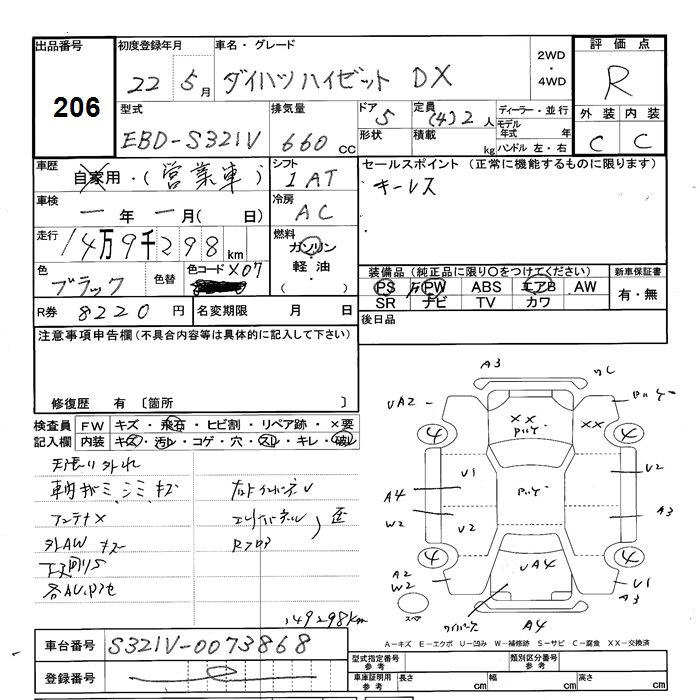 出品番号 206
初度登録年月 22 5月
車名・グレード ダイハツハイゼット DX
2WD・4WD
評価点 R
外装 内装
C C
型式 EBD-S321V
排気量 660 cc
ドア 5
形状
定員 (4)2人
積載 kg
ディーラー・並行
モデル年式 年
ハンドル 左・右
車歴 自家用・(営業車)
シフト 1AT
車検 一年一月(日)
冷房 AC
走行 14万9千298km
燃料 ガソリン・軽油・( )
色 ブラック
色替
色コード X07
R券 8220円
名変期限 月 日
セールスポイント(正常に機能するものに限ります)
キーレス
装備品(純正品に限り○をつけてください)
PS PW ABS エアB AW
SR ナビ TV カワ
新車保証書
有・無
後日品
注意事項申告欄(不具合内容等は具体的に記入して下さい)
修復歴 有〔箇所
検査員記入欄
FW キズ・飛石・ヒビ割・リペア跡・×要
内装 キズ・汚レ・コゲ・穴・スレ・キレ・破レ
天張り外れ
アンテナ×
外AW キズ
下廻りS
各AU,P,W
149298km
Rフロア
歪
A3
UA2
4
4
××
××
U1
U2
A4
W2
U2
A3
4
4
A2
W2
UA4
U1
A3
A4
スペア
A=キズ E=エクボ U=凹み W=補修跡 S=サビ C=腐食 XX=交換済
車台番号 S321V-0073868
登録番号
型式指定番号 参考
類別区分番号 参考
車庫証明用 参考
長さ cm
幅 cm
高さ cm